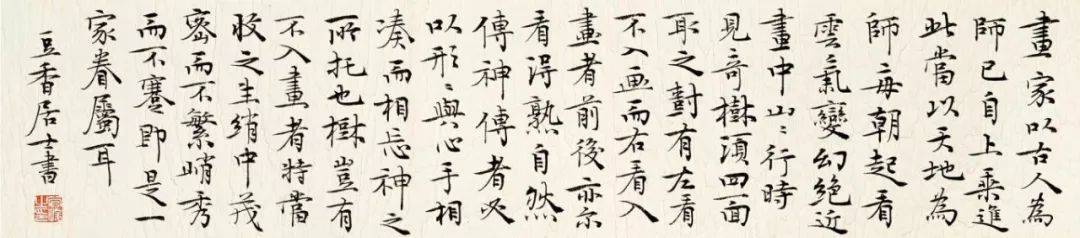 畫家以古人為
師已自上乘進
此當以天地為
師每朝起看
雲氣變幻絕近
畫中山〻行時
見奇樹須四面
取之對有左看
不入画而右看入
畫者前後亦尒
看得熟自然
傳神傳者必
以形〻與心手相
湊而相忘神之
所托也樹豈有
不入畫者特當
收之生綃中茂
密而不繁峭秀
而不蹇即是一
家眷屬耳
豆香居士書